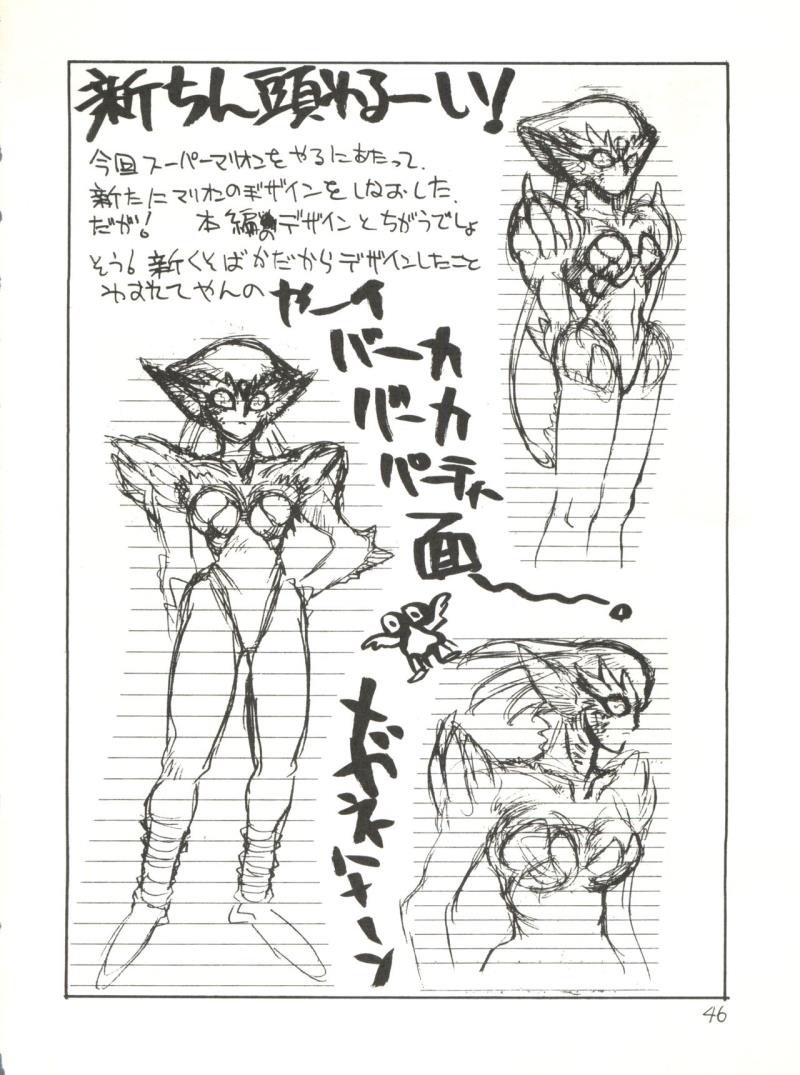 新ちん頭わるーい!
今回スーパーマリオンをやるにあたって、
新たにマリオンのデザインをしなおした、
だが! 本編のデザインとちがうでしょ
そう。新くそばかだからデザインしたこと
わすれてやんの やーイ
バーカ
バーカ
パーティー
面
46